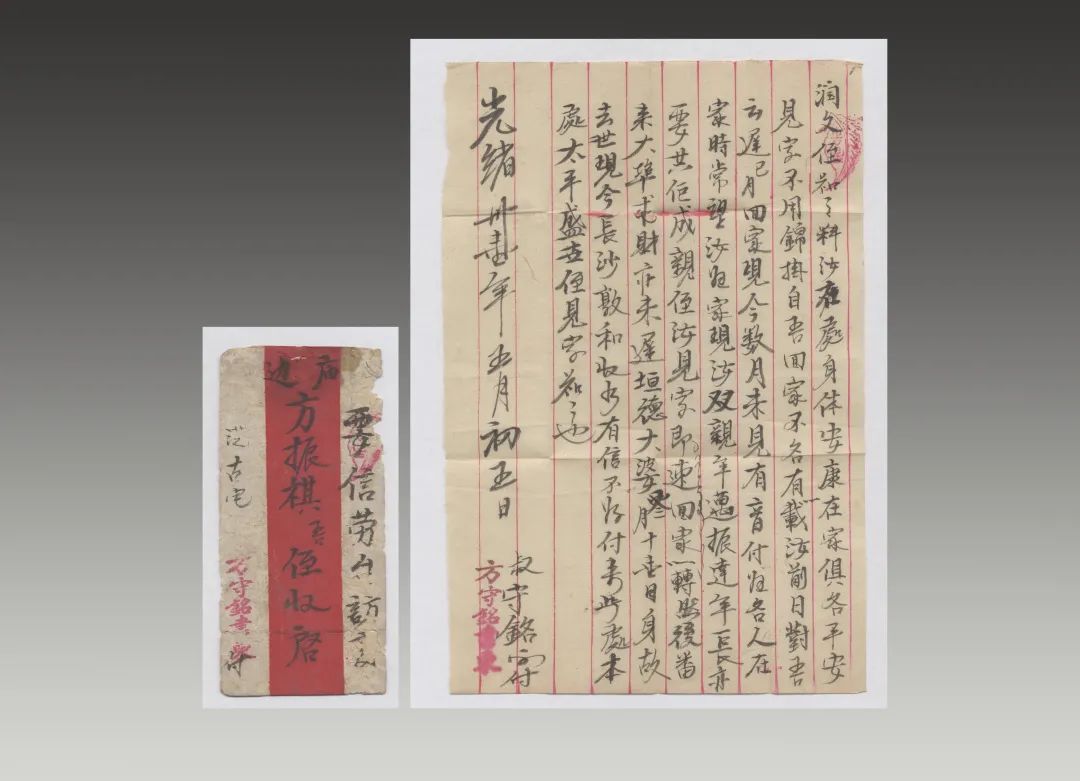 要信勞台訪交
庙邊
方振棋吾侄收啓
古宅
方守銘書柬
付
潤文侄知之料汝在處身体安康在家俱各平安
見字不用錦掛自吾回家不各有載汝前日對吾
云遲已月回家現今数月未見有音付归各人在
家時常望汝归家現汝双親年邁振達年長亦
要共佢成親侄汝見字即速回家一轉然後番
来大埠求財亦未遲垣德大婆月十壹日身故
去世現今長沙敦和收水有信不好付来此處本
處太平盛世侄見字知之也
光緒卅壹年五月初五日
叔守銘字付
方守銘書柬